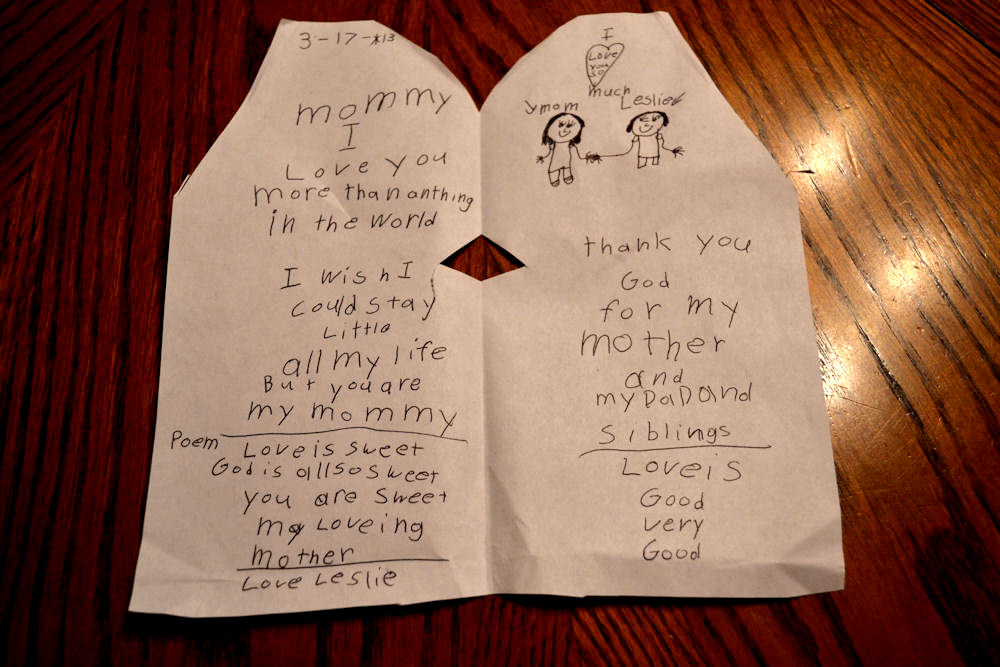 3-17-13
mommy
I
Love you
more than anthing
in the World
I wish I
could stay
Little
all my life
But you are
my mommy
Poem
Love is sweet
God is allso sweet
you are sweet
my Loveing
mother
Love Leslie
I
Love
you
so
much
mom
Leslie
thank you
God
for my
mother
and
my DaD and
siblings
Love is
Good
very
Good